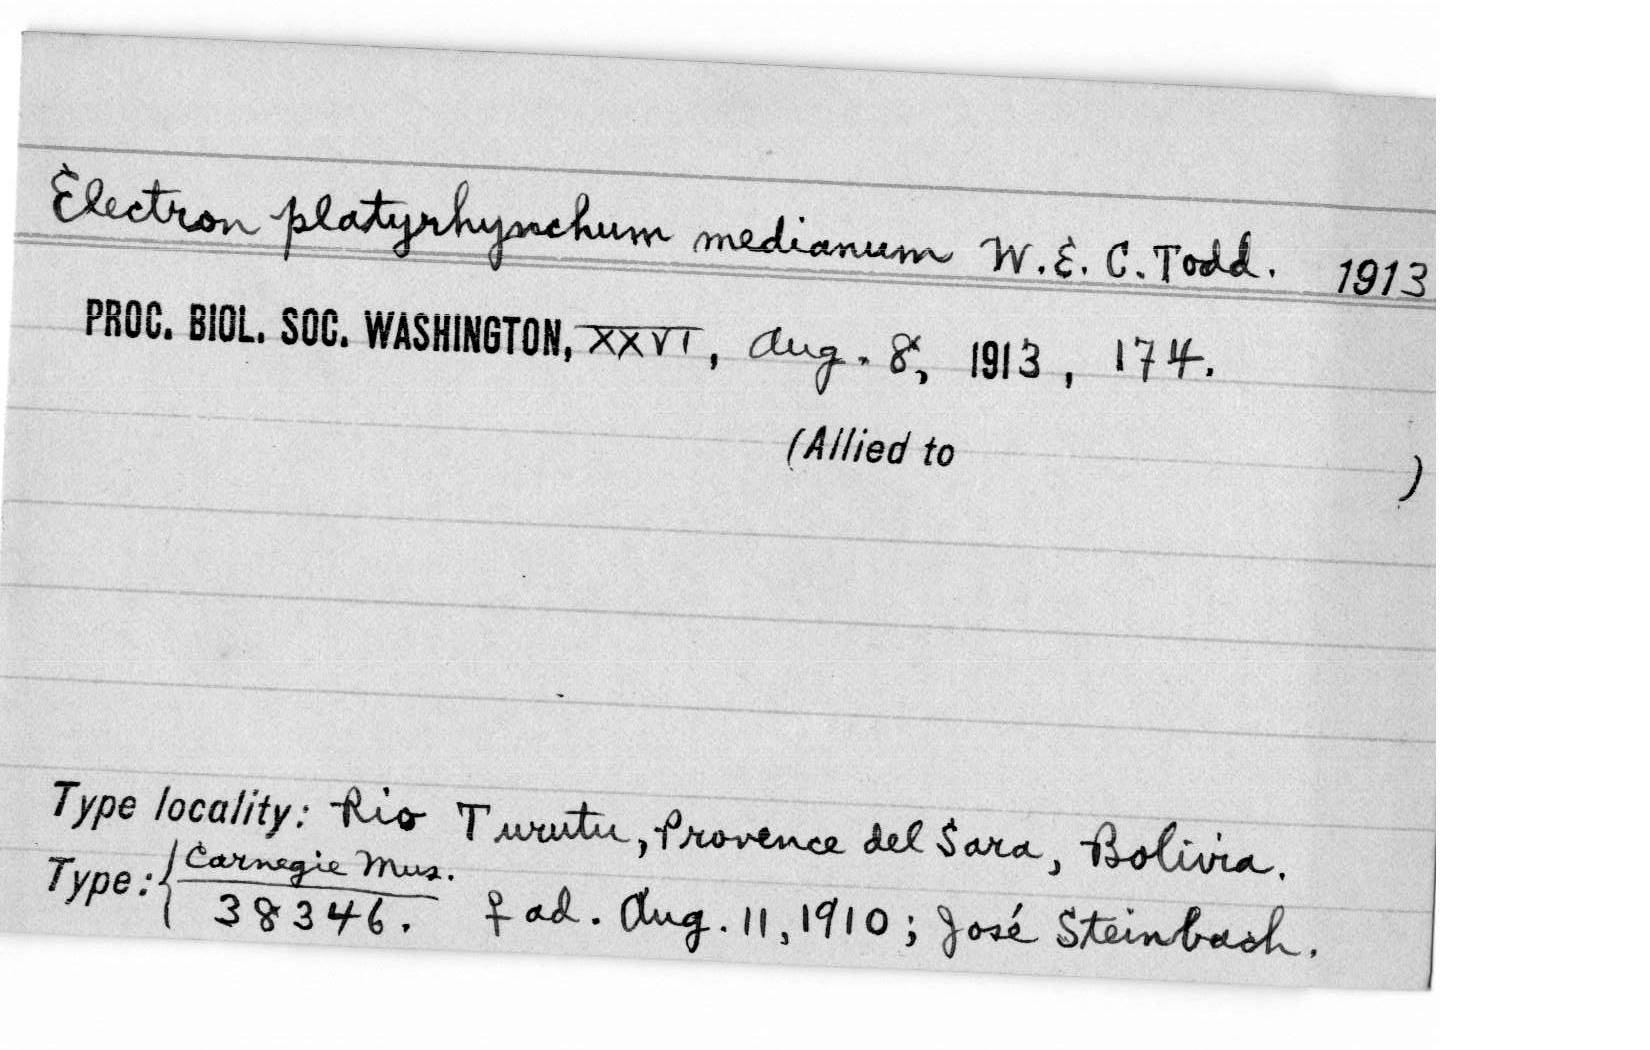 Electron platyrhynchum medianum W. E. C. Todd. 1913
PROC. BIOL. SOC. WASHINGTON, XXVI, Aug. 8, 1913, 174.
(Allied to )
Type locality: Rio Turutu, Provence del Sara, Bolivia.
Type: { Carnegie Mus.
38346. ♀ ad. Aug. 11, 1910; José Steinbach.